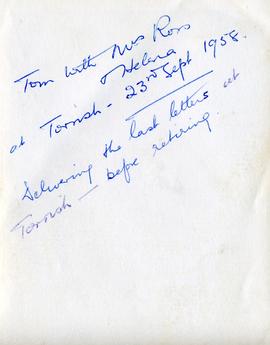 Tom with Mrs Ross
& Helena
at Torrish - 23rd Sept 1958.
Delivering the last letters at
Torrish - before retiring.